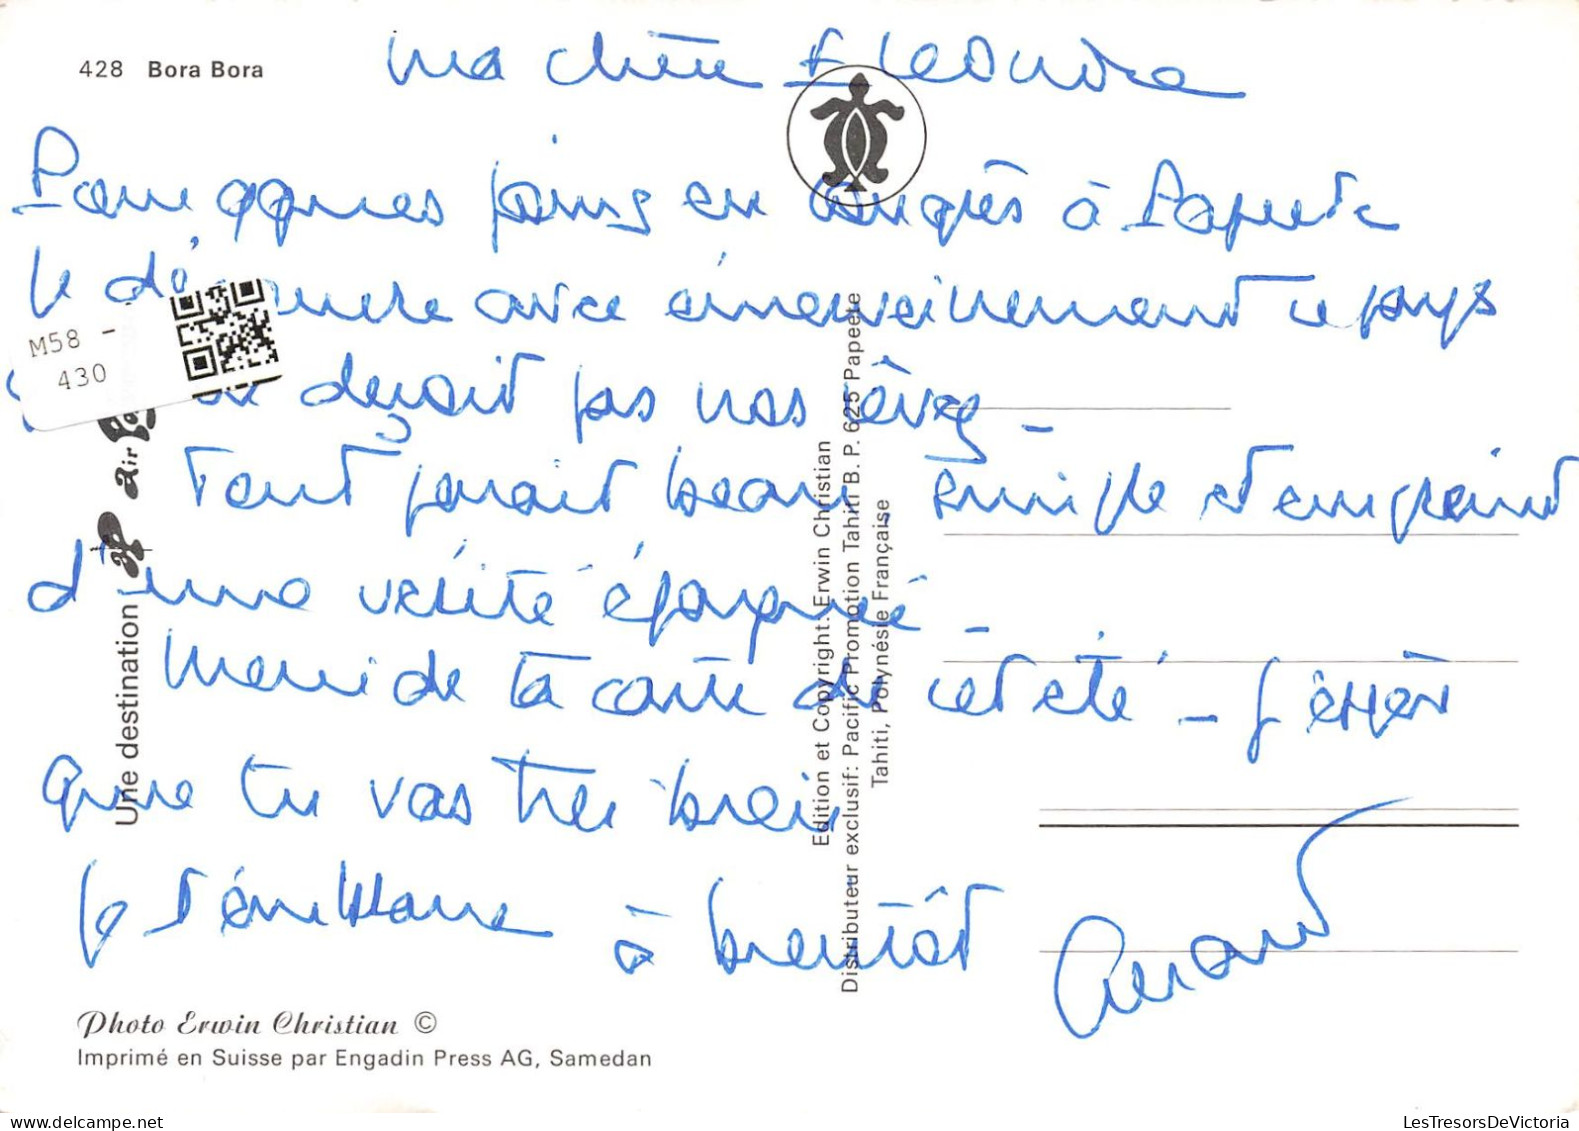 428 Bora Bora
Ma chère Eléonore
Pour qques jours en congrès à Papeete
Je découvre avec émerveillement ce pays
ne deçoit pas nos rêves -
Tout parait beau, simple et empreint
d'une vérité épargnée -
Merci de ta carte de cet été - J'espère
que tu vas très bien
Je t'embrasse à bientôt
M58 -
430
Une destination air
Edition et Copyright: Erwin Christian
Distributeur exclusif: Pacific Promotion Tahiti B. P. 625 Papeete
Tahiti, Polynésie Française
Photo Erwin Christian ©
Imprimé en Suisse par Engadin Press AG, Samedan
delcampe.net
LesTresorsDeVictoria